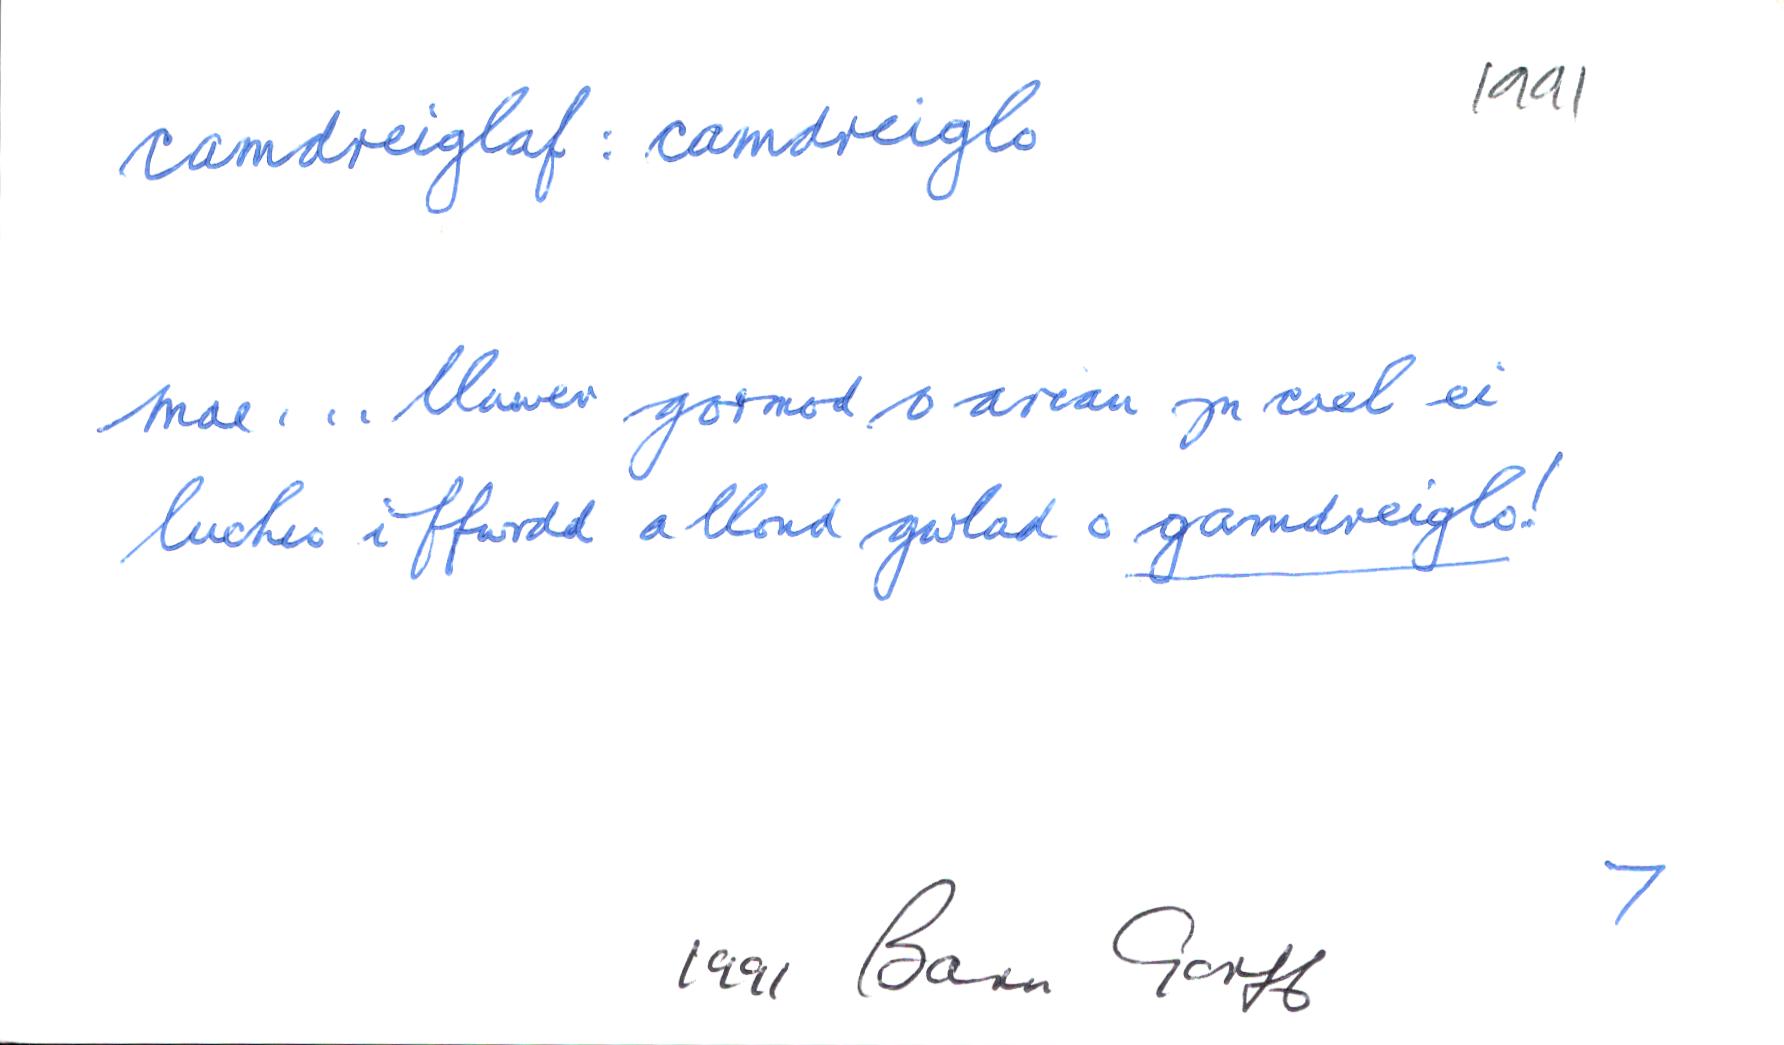 1991
camdreiglaf : camdreiglo
mae... llawer gormod o arian yn cael ei
luchio i ffwrdd a llond gwlad o gamdreiglo!
7
1991 Barn Gorff